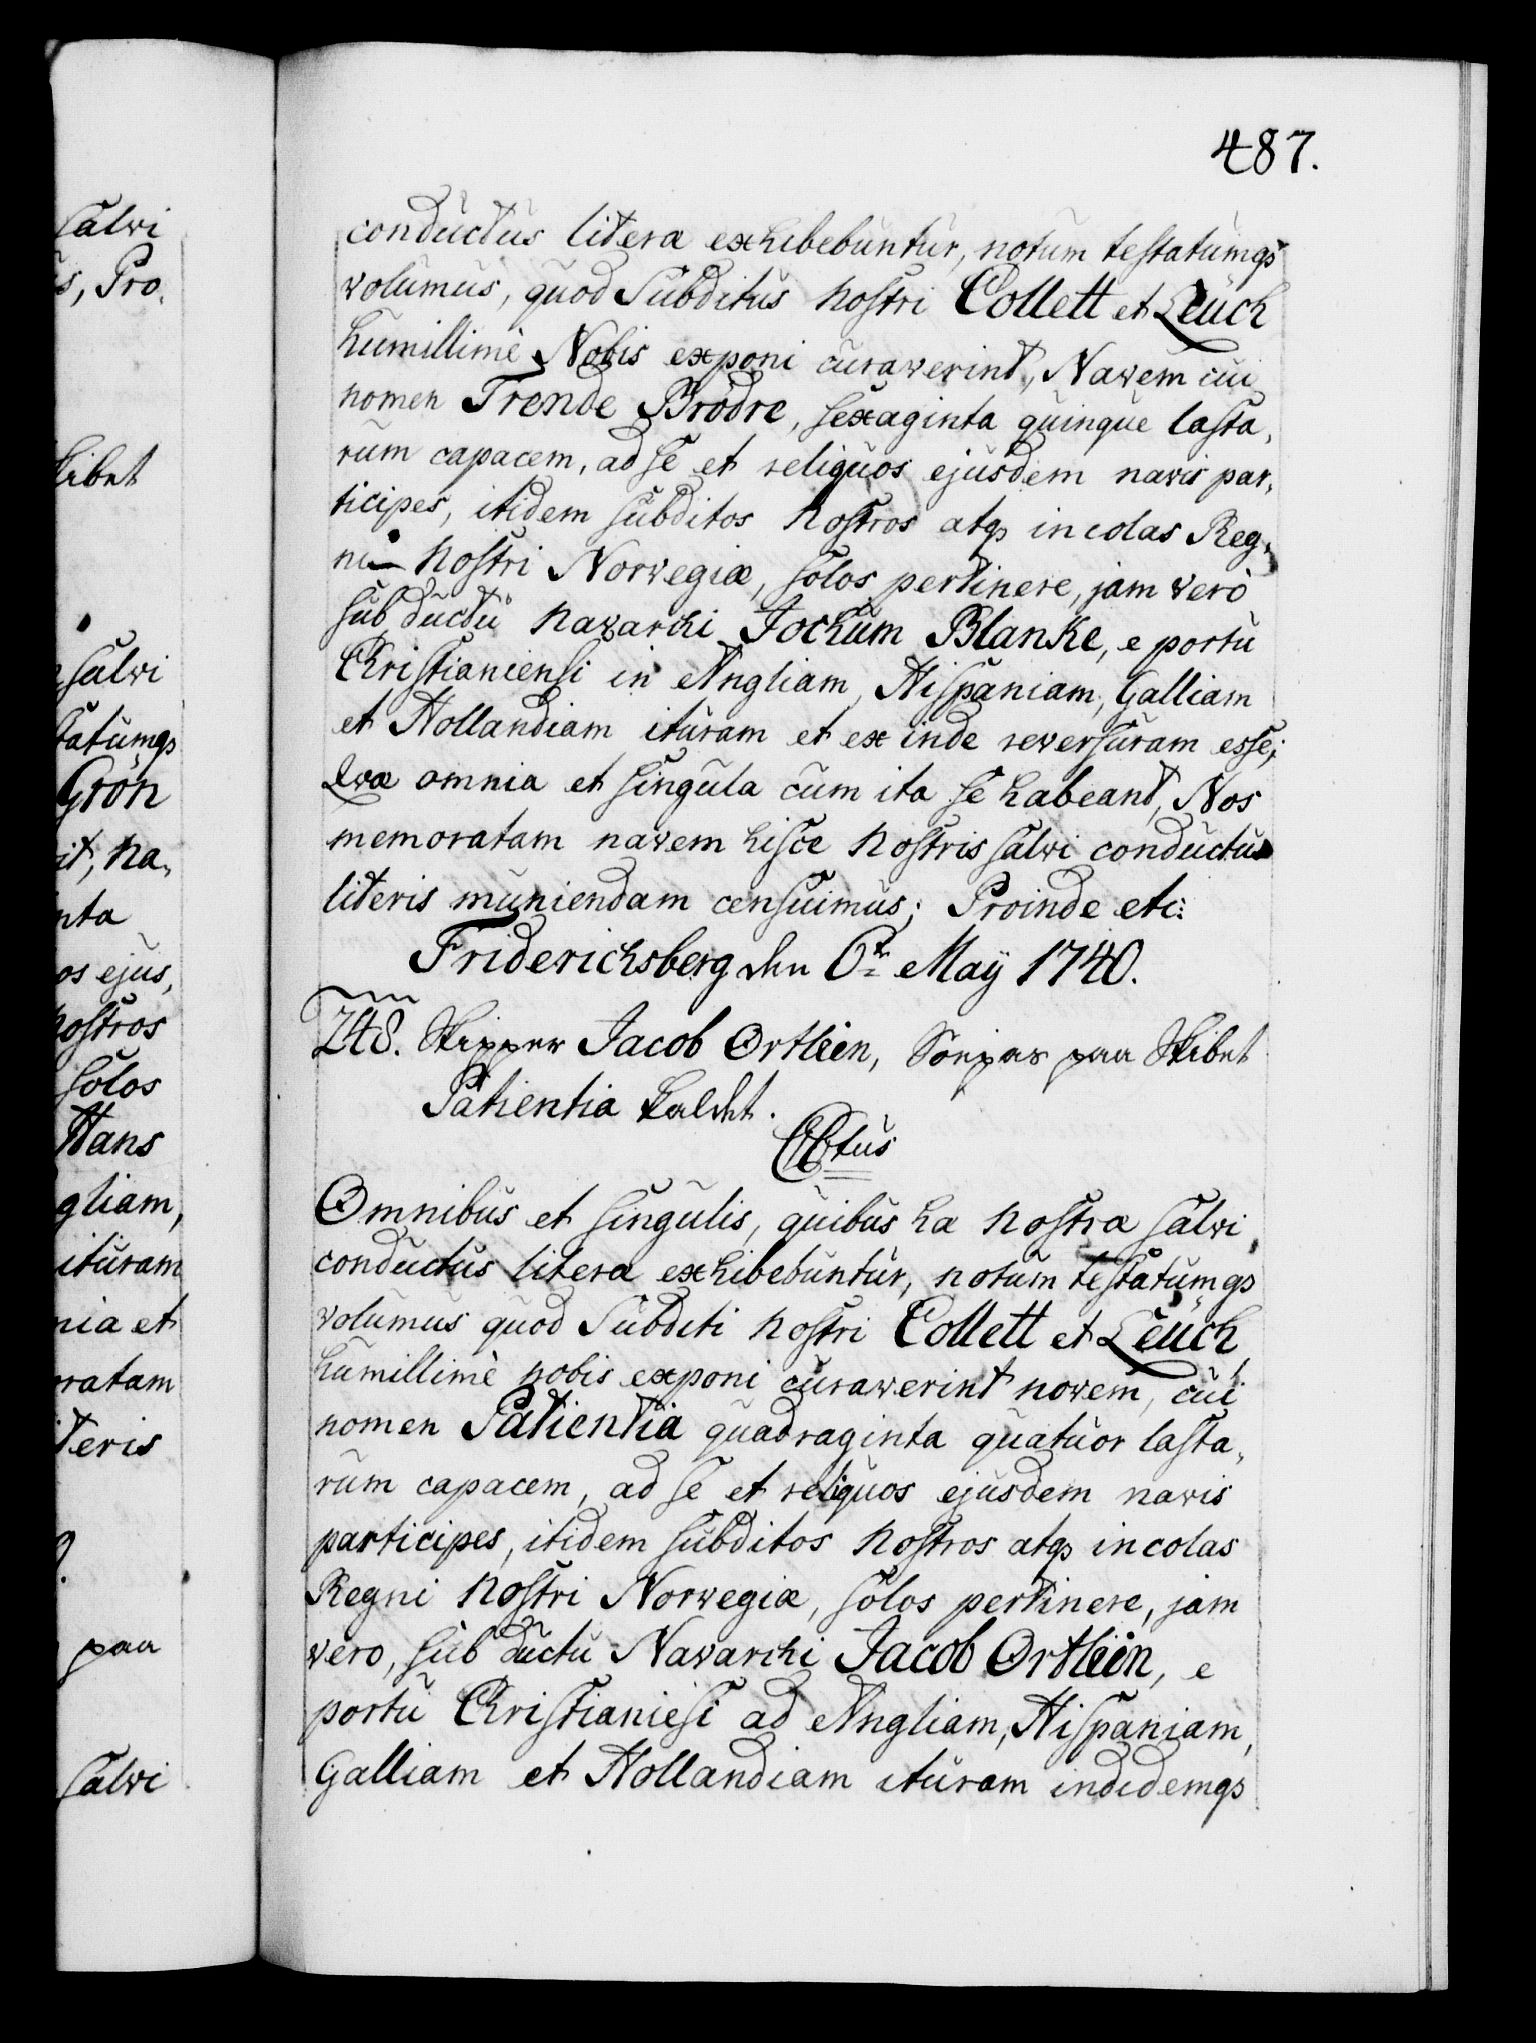 487.
conductus literæ exhibebuntur, notum testatumqs
volumus, quod Subditus nostri Collett et Leuch
humillimè Nobis exponi curaverint, Navem cui
nomen Trende Brödre, sexaginta quinque lasta,
rum capacem, ad se et reliquos ejusdem navis par,
ticipes, itidem subditos nostros atqs incolas Reg,
ni nostri Norvegiæ, solos pertinere, jam verò
sub ductu navarchi Jochum Blanke, e portu
Christianiensi in Angliam, Hispaniam, Galliam
et Hollandiam ituram et exinde reversuram esse;
Qvæ omnia et singula cum ita se habeant, Nos
memoratam navem hisce nostris salvi conductus
literis muniendam censuimus; Proinde etc:
Friderichsberg den 6te May 1740.
248. Skipper Jacob Ortlien, Söepas paa Skibet
Patientia kaldet.
C6tus
Omnibus et singulis, quibus hæ nostræ salvi,
conductus literæ exhibebuntur, notum testatumqs
volumus quod Subditi nostri Collett et Leuch,
humillimè nobis exponi curaverint novem, cui
nomen Patientia quadraginta quatuor lasta,
rum capacem, ad se et reliquos ejusdem navis
participes, itidem subditos nostros atqs incolas
Regni nostri Norvegiæ, solos pertinere, jam
vero, sub ductu Navarchi Jacob Ortlien, e
portu Christianiesi ad Angliam, Hispaniam,
Galliam et Hollandiam ituram indidemqs
salvi
s, Pro.
kibet
salvi
tatumqs
Grön
it, na,
nta
os ejus,
nostros
solos
Hans
gliam,
ituram
nia et
ratam
teris
paa
salvi